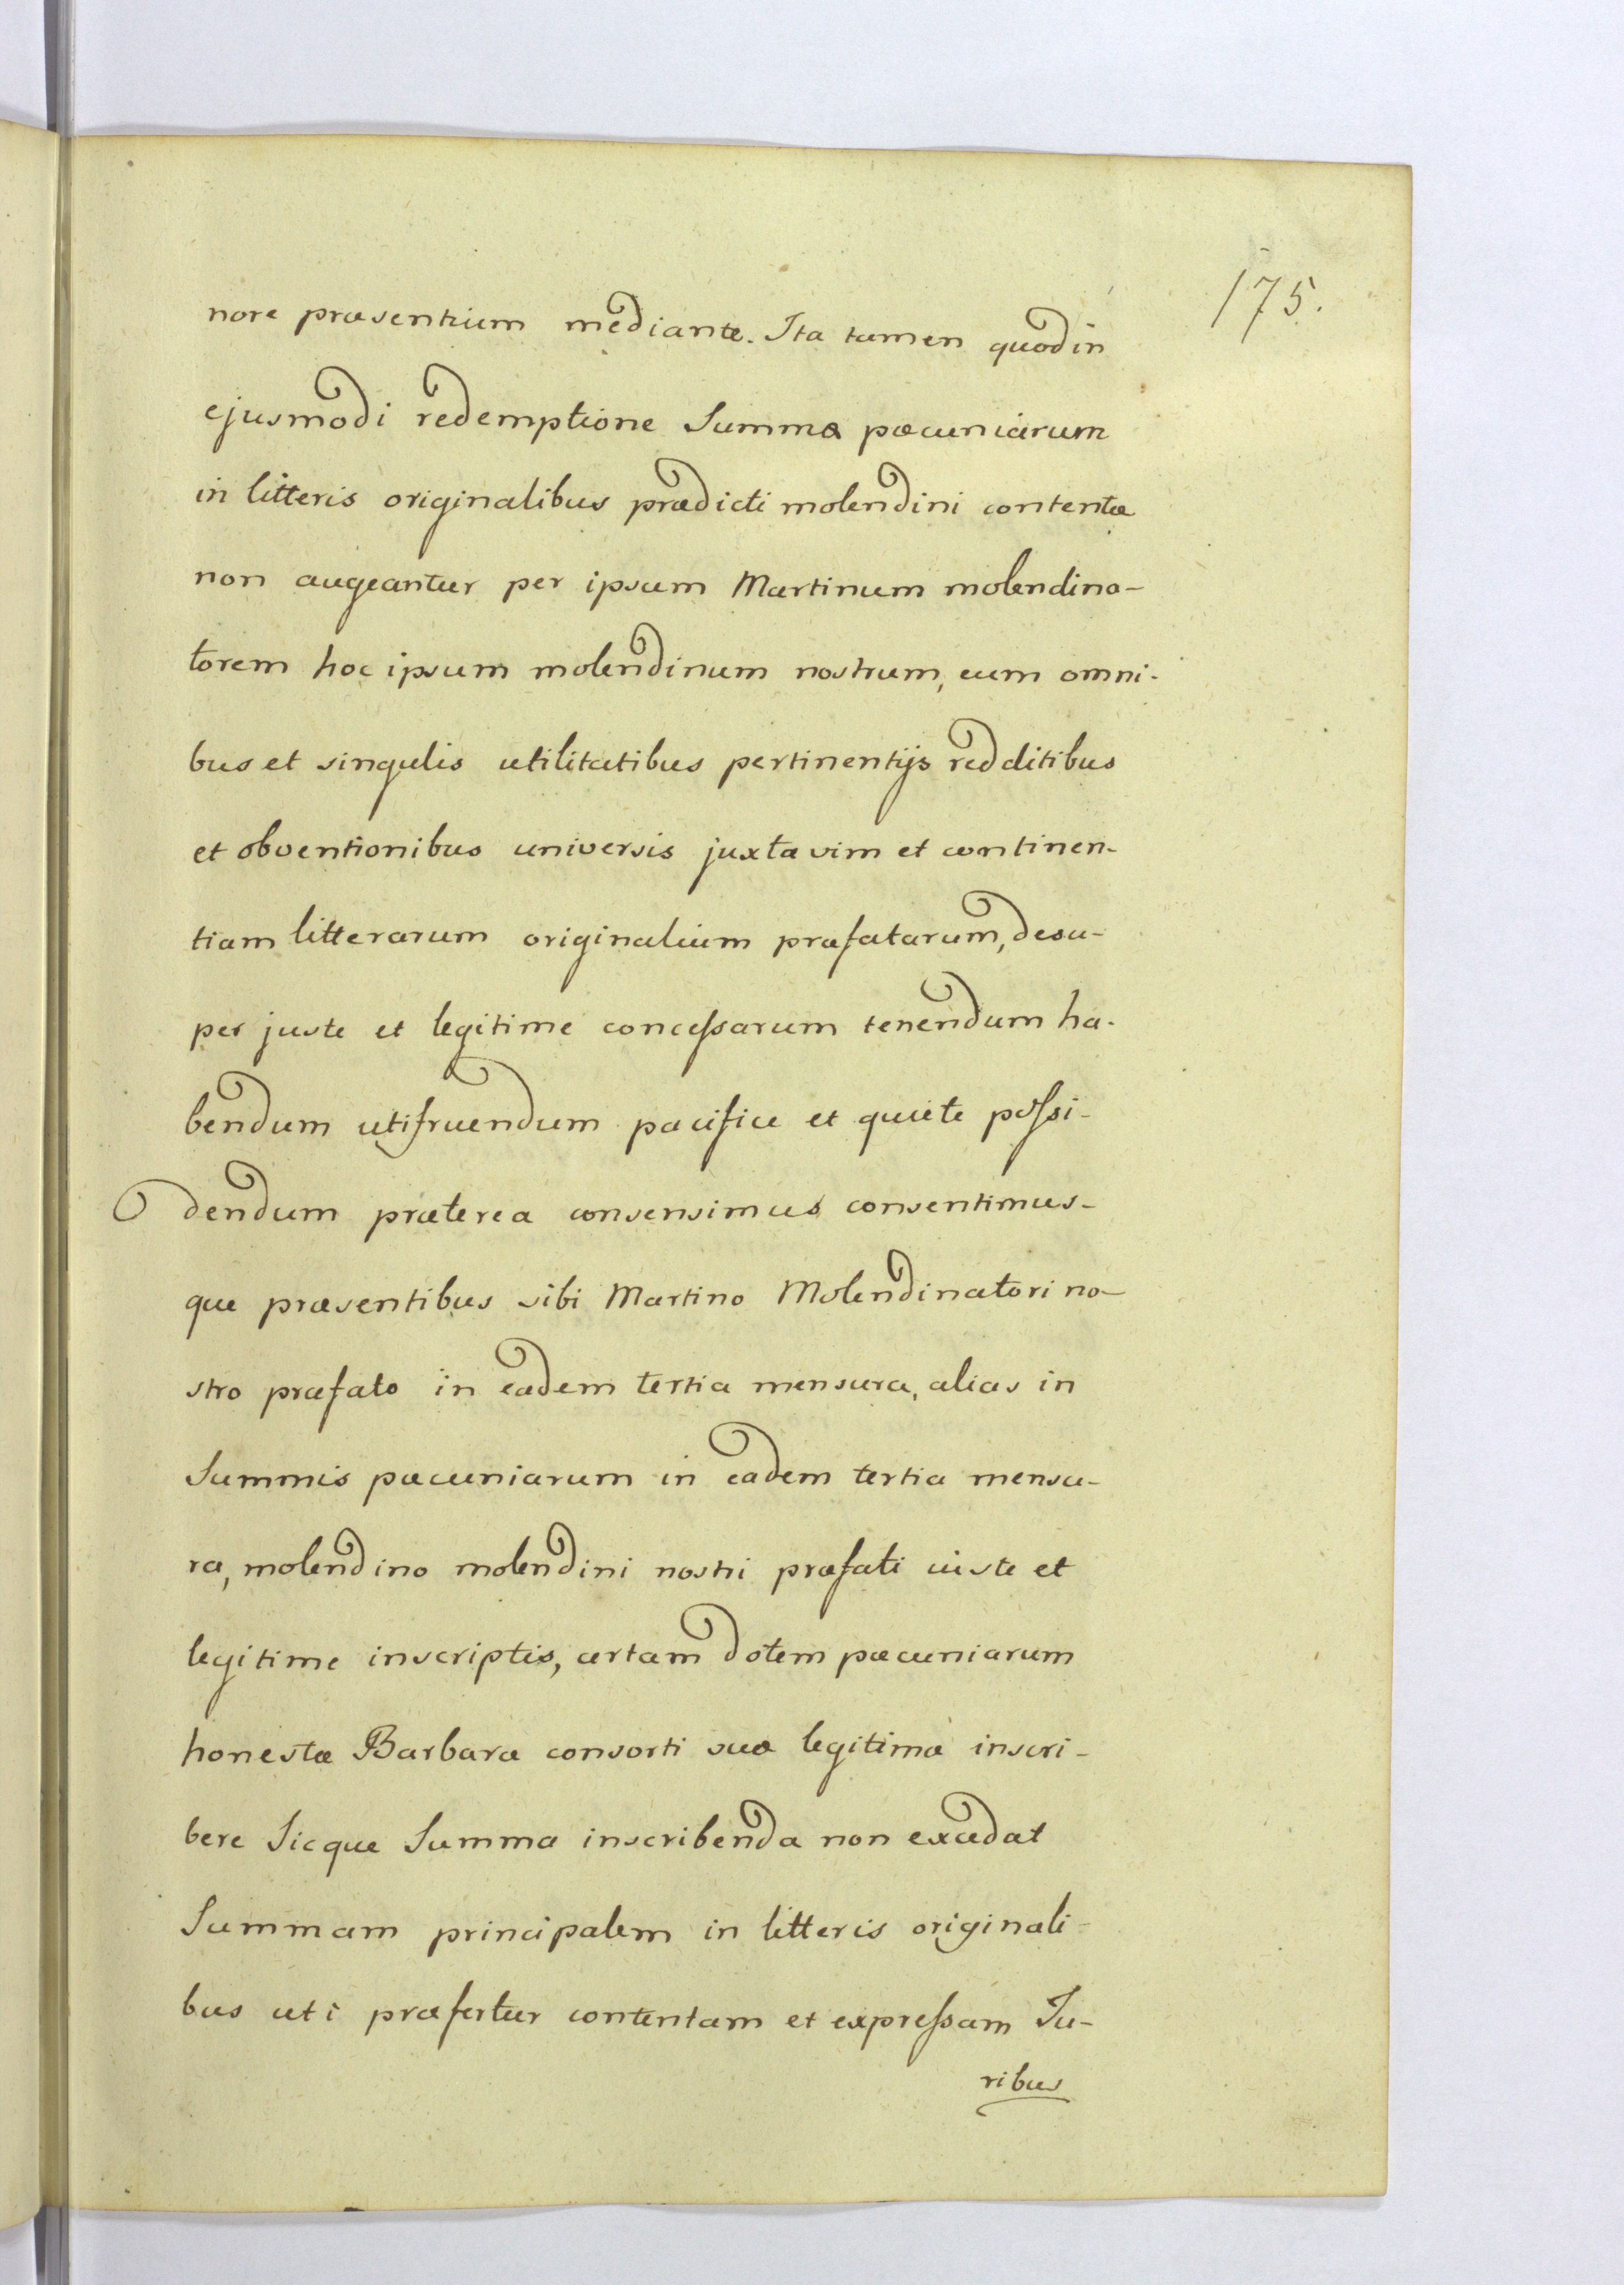 175.
nore præsentium mediante. Ita tamen quod in
ejusmodi redemptione Summæ pæcuniarum
in litteris originalibus prædicti molendini contentæ
non augeantur per ipsum Martinum molendina-
torem hoc ipsum molendinum nostrum, cum omni-
bus et singulis utilitatibus pertinentijs redditibus
et obventionibus universis juxta vim et continen-
tiam litterarum originalium præfatarum, desu-
per juste et legitime concessarum tenendum ha-
bendum utifruendum pacifice et quiete possi-
dendum præterea consensimus consentimus-
que præsentibus sibi Martino Molendinatori no-
stro præfato in eadem tertia mensura, alias in
Summis pæcuniarum in eadem tertia mensu-
ra, molendino molendini nostri præfati iuste et
legitime inscriptis, certam dotem pæcuniarum
honestæ Barbaræ consorti suæ legitimæ inscri-
bere Sicque Summa inscribenda non excedat
Summam principalem in litteris originali-
bus uti præfertur contentam et expressam Ju-
ribus